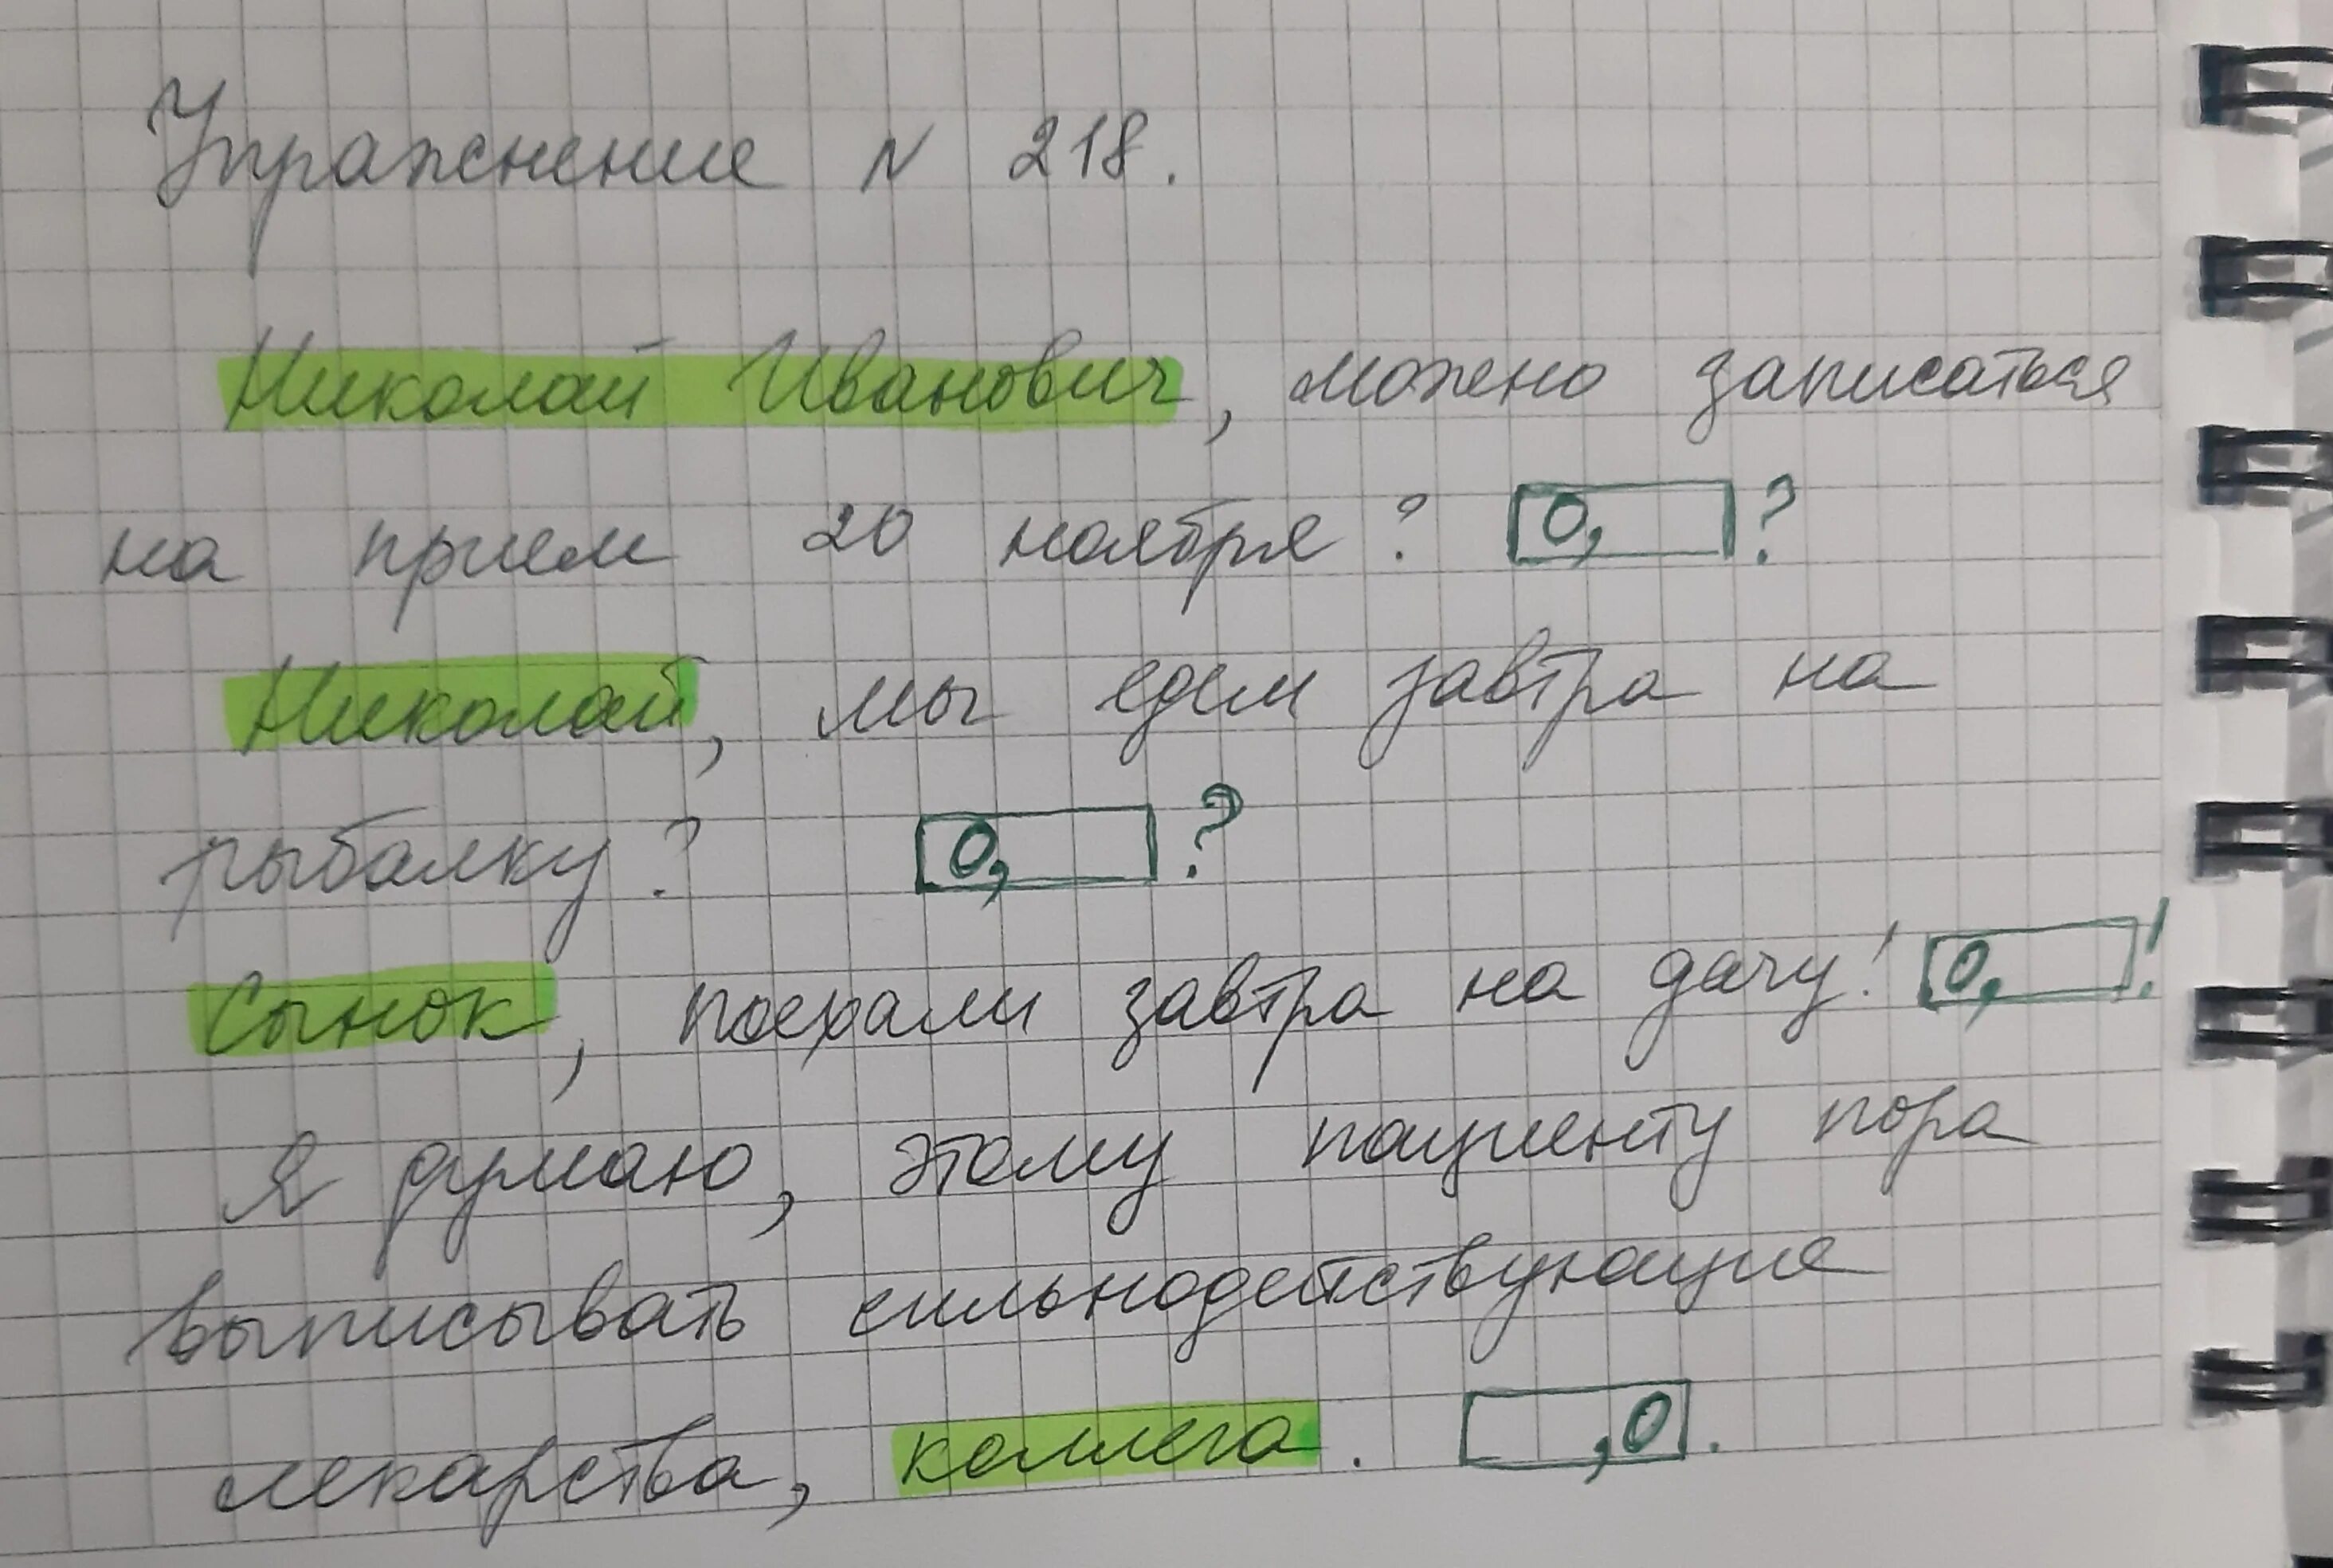 Упражнение N 218.
Николай Иванович, можно записаться
на прием 20 ноября? [О, ]?
Николай, мы едем завтра на
рыбалку? [О, ]?
Сынок, поехали завтра на дачу! [О, ]!
Я думаю, этому пациенту пора
выписывать сильнодействующие
лекарства, коллега. [ ,О].